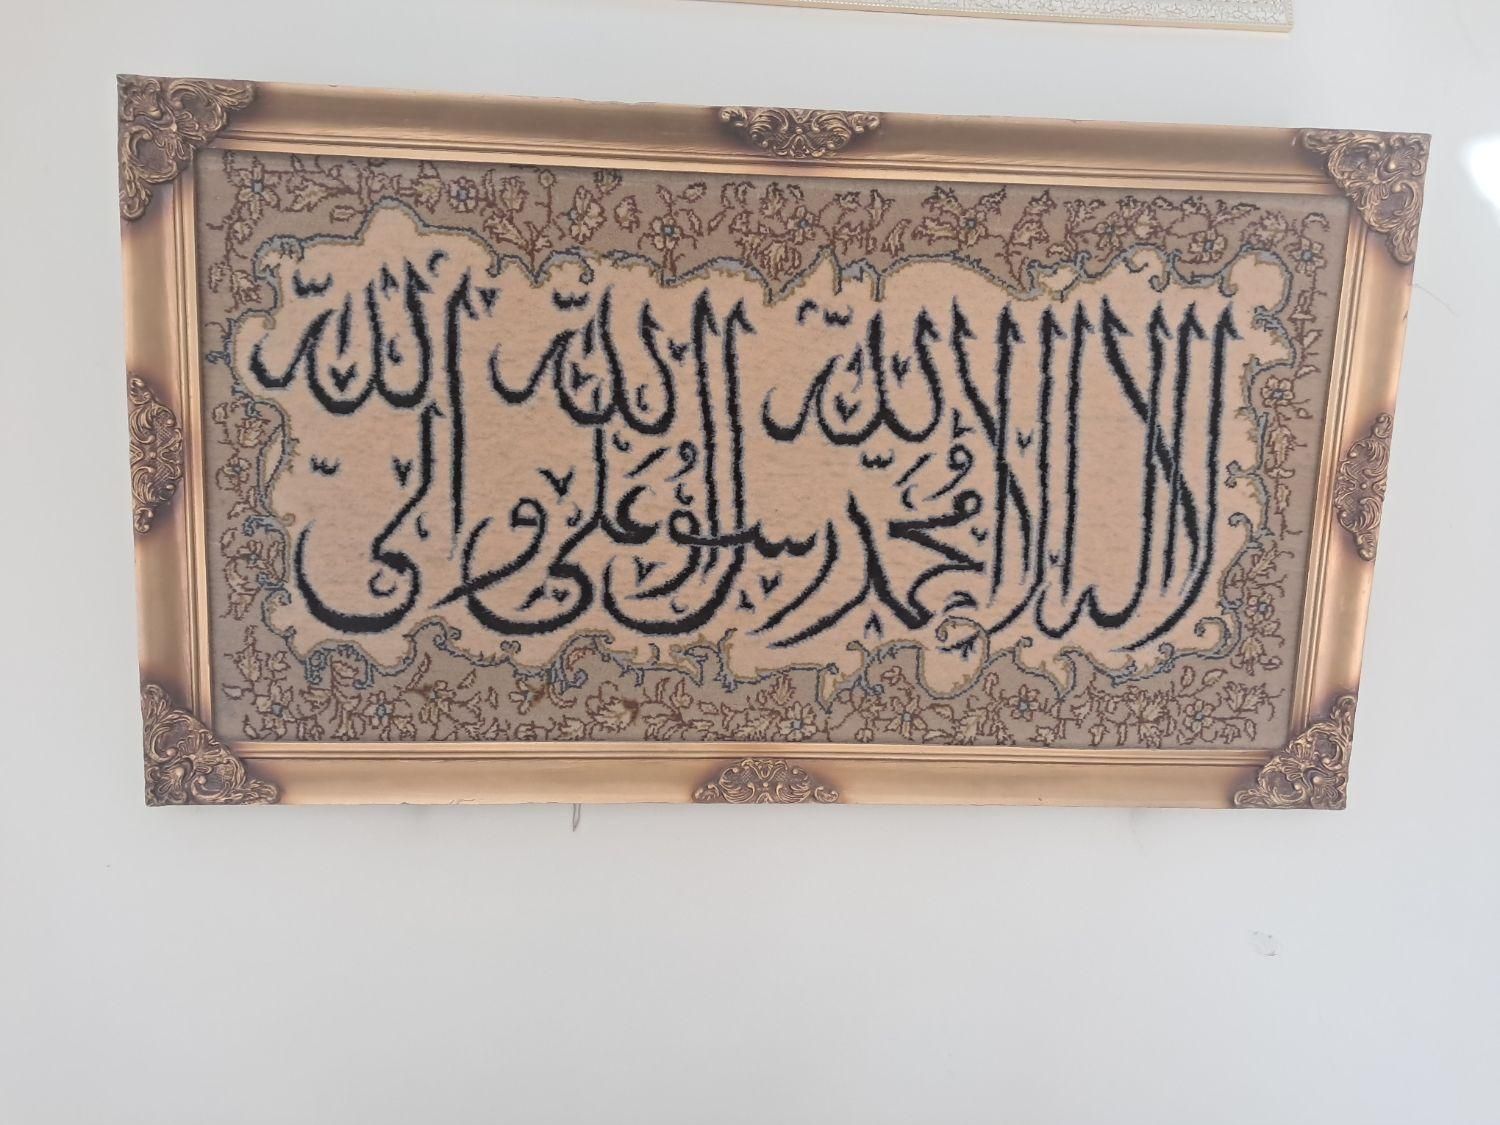 لا اله الا الله محمد رسول الله علی ولی الله